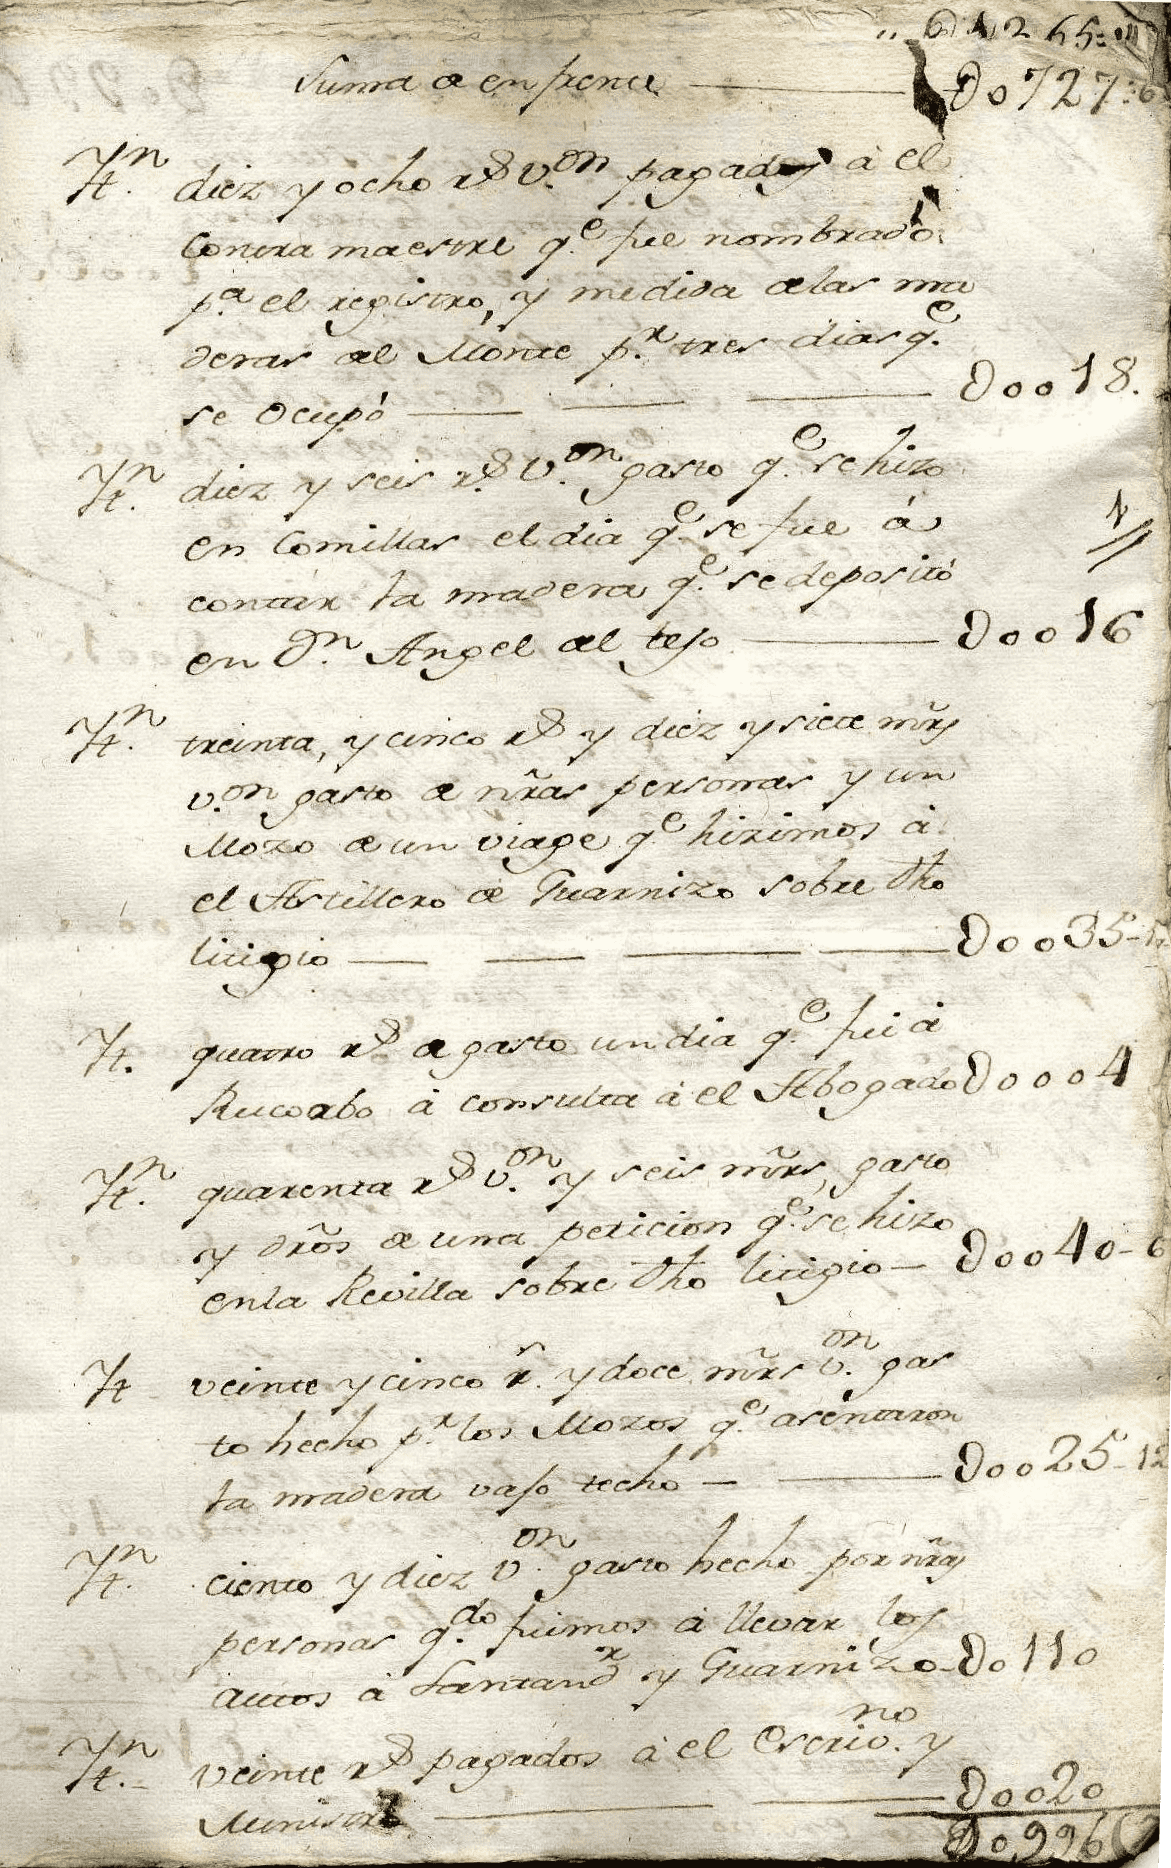 Suma de enfrente D o 727:6
Ytn. diez y ocho rs v.on pagados à el
Contra maestre q.e fue nombrado
p.a el registro, y medida delas ma
deras del Monte p.r tres dias q.e
se ocupó D o o 18.
Ytn. diez y seis rs v.on gasto q.e se hizo
en Comillas el dia q.e se fue á
contar la madera q.e se depositó
en Dn. Angel del tejo D o o 16
Ytn. treinta, y cinco rs y diez y siete mrs
v.on gasto de nras personas y un
Mozo de un viage q.e hizimos à
el Astillero de Guarnizo sobre dho
litigio D o o 35-17
Yt. quatro rs de gasto un dia q.e fui à
Rucorbo à consulta à el Abogado D o o o 4
Ytn. quarenta rs v.on y seis mrs, gasto
y dros de una peticion q.e se hizo
en la Revilla sobre dho litigio D o o 40-6
Yt veinte y cinco rs. y doce mrs v.on gas
to hecho p.r los Mozos q.e asentaron
la madera vajo techo D o o 25-12
Ytn. ciento y diez v.on gasto hecho por nras
personas q.do fuimos à llevar los
autos à Santand.r y Guarnizo D o 110
Ytn. veinte rs pagados à el Escrivno. y
Ministro D o o 20
D o 996